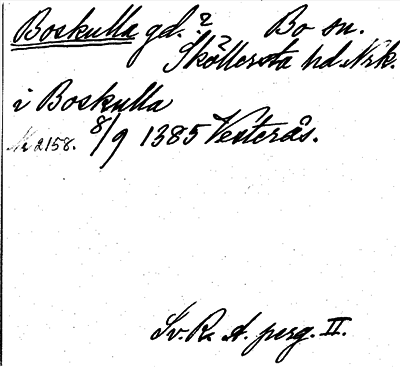 Boskulla gd.? Bo sn.
Sköllersta hd. Nrk.
i Boskulla
Nr 2158. 8/9 1385 Vesterås.
Sv. R. A. perg. II.